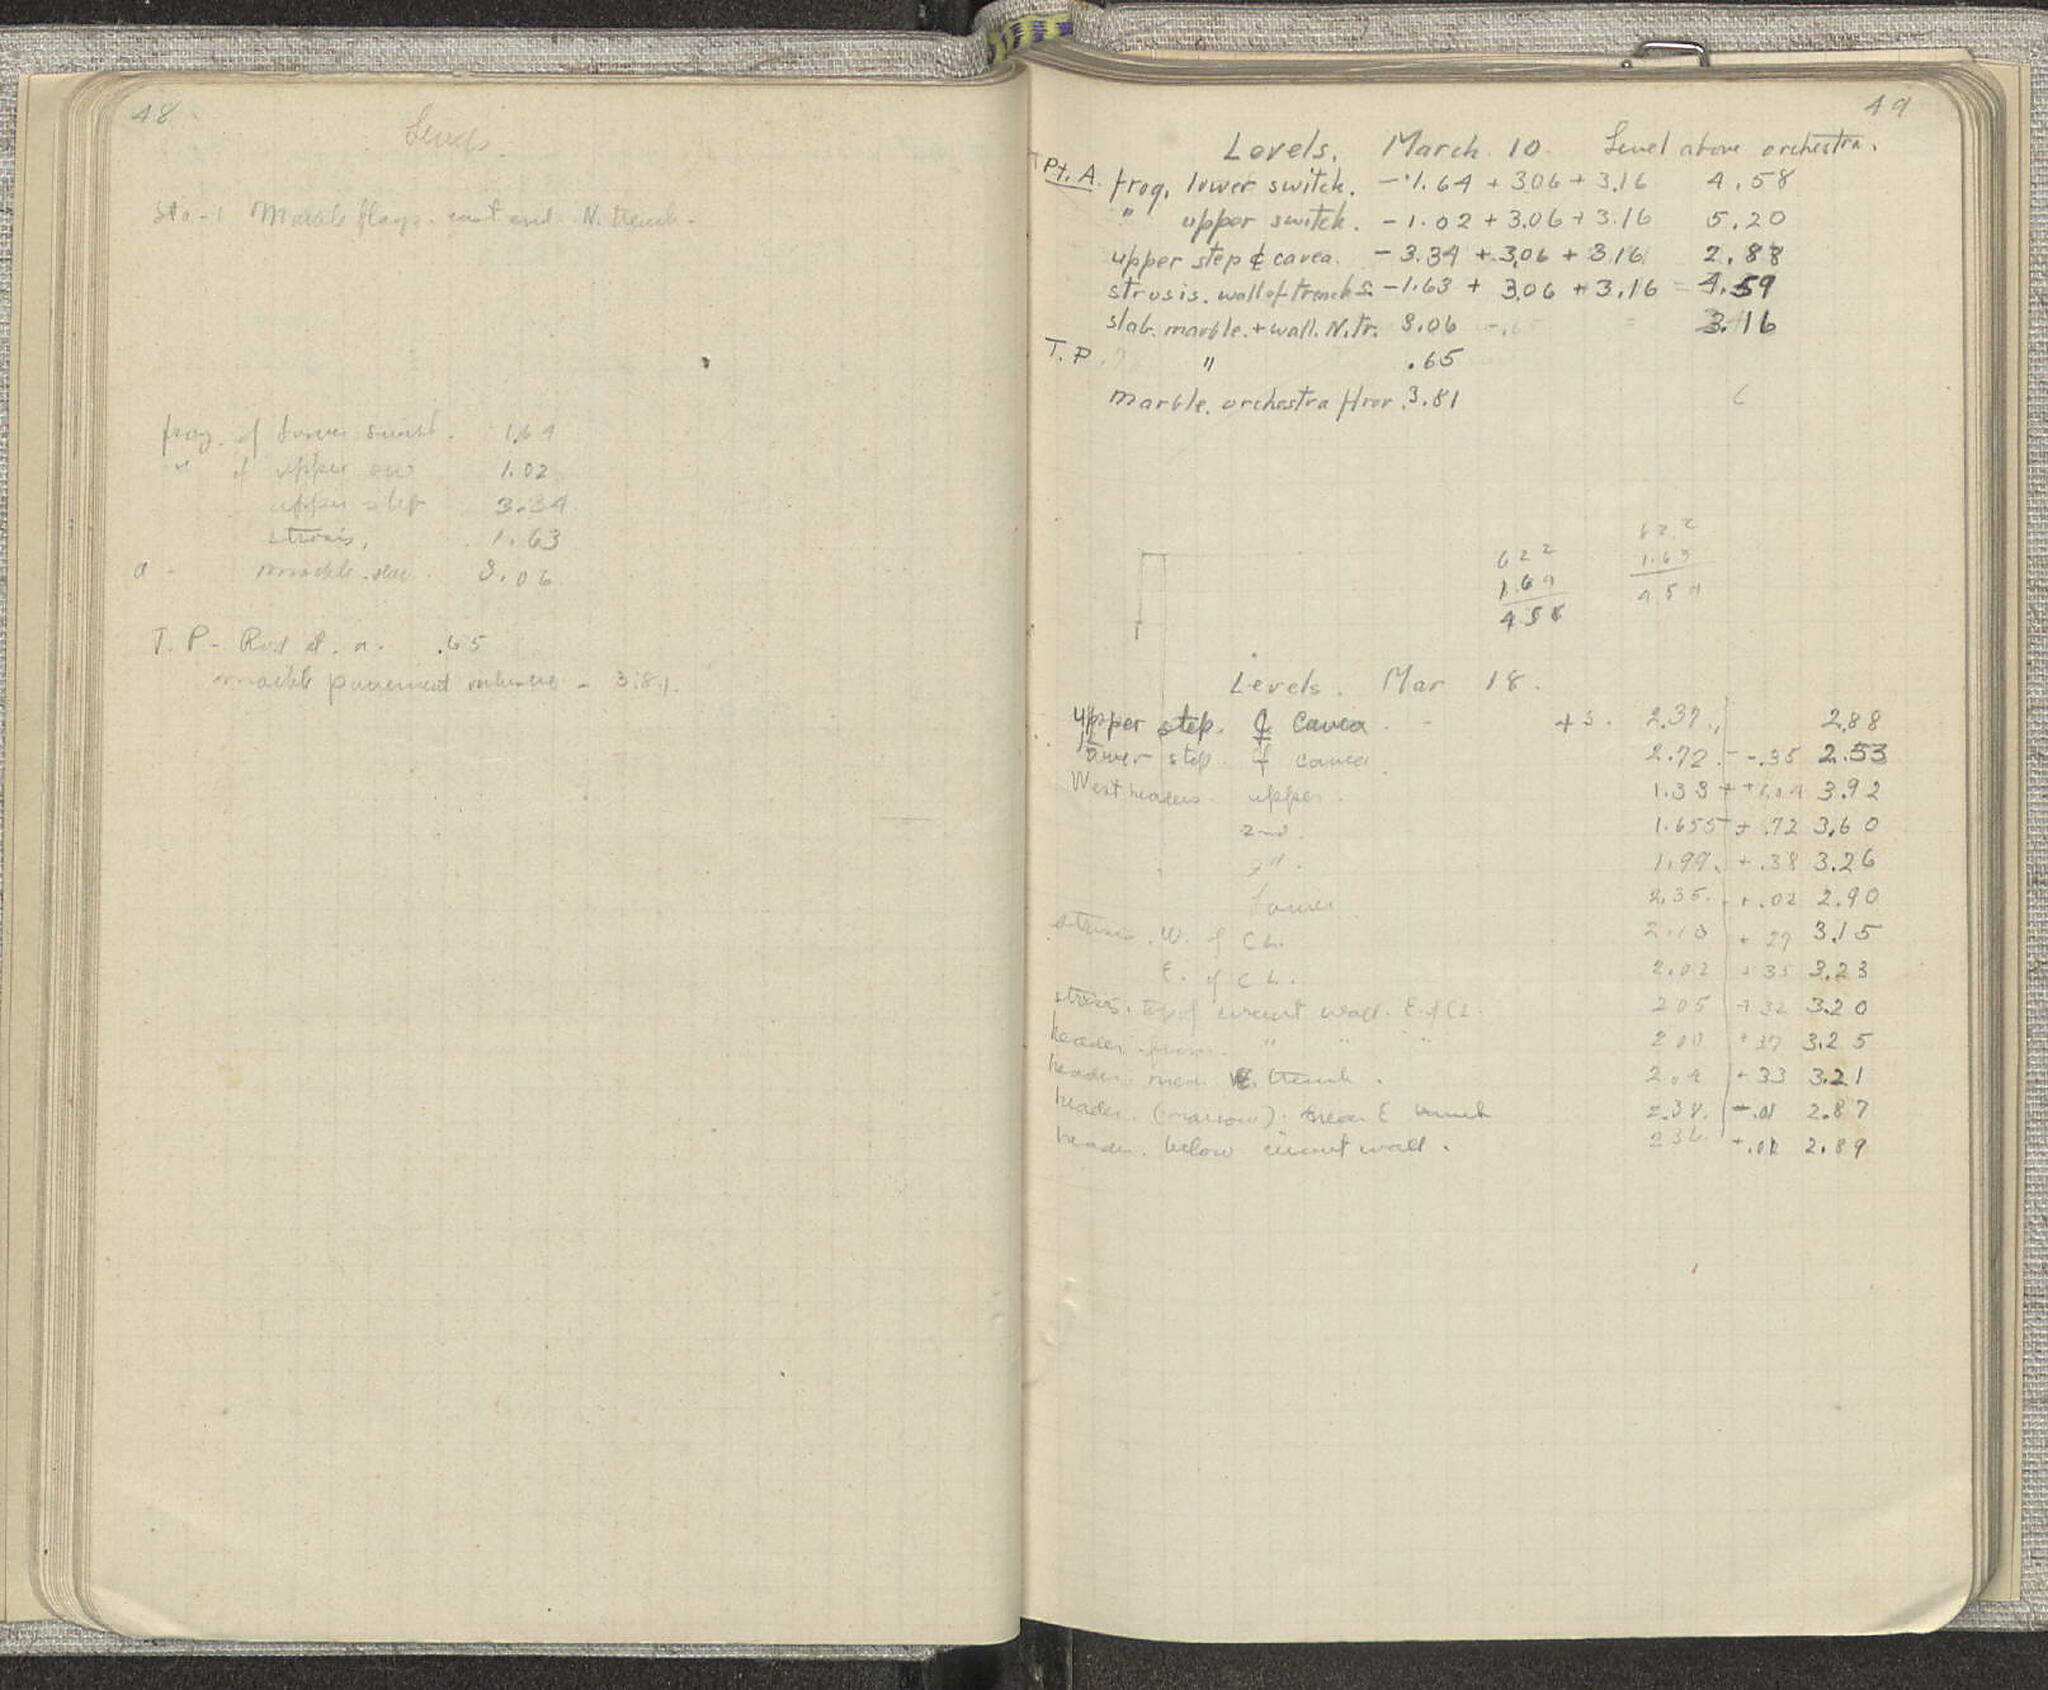 48
Levels.
Sta-1 Marble flags. east end. N. trench.
frog. of lower switch. 1.64
" of upper one 1.02
upper step 3.34
strosis, 1.63
a - marble slab. 3.06
T. P - Rod at. a. .65
marble pavement - 3.81.
49
Levels. March. 10. Level above orchestra.
T Pt. A. frog. lower switch. -1.64 + 3.06 + 3.16 4.58
" upper switch. -1.02 + 3.06 + 3.16 5.20
upper step ℄ cavea. -3.34 + 3.06 + 3.16 2.88
strosis. wall of trench S. -1.63 + 3.06 + 3.16 = 4.59
slab. marble. + wall. N. tr. 3.06 -.65 = 3.16
T. P. " .65
marble. orchestra floor. 3.81
622
1.64
458
622
1.63
4.59
Levels. Mar 18.
upper step. ℄ cavea. +S. 2.37. 2.88
lower step. ℄ cavea. 2.72 - .35 2.53
West headers. upper. 1.33 + 1.04 3.92
2nd. 1.655 + .72 3.60
3rd. 1.99. + .38 3.26
lower. 2.35. + .02 2.90
strosis. W. of CL. 2.10 + 27 3.15
E. of CL. 2.02 + 35 3.23
strosis. top of circuit wall. E. of CL. 205 + 32 3.20
header " " " 200 + 37 3.25
header near E. trench. 2.04 + 33 3.21
header. (narrow). near E trench 2.38. - .01 2.87
header. below circuit wall. 236. + .01 2.89